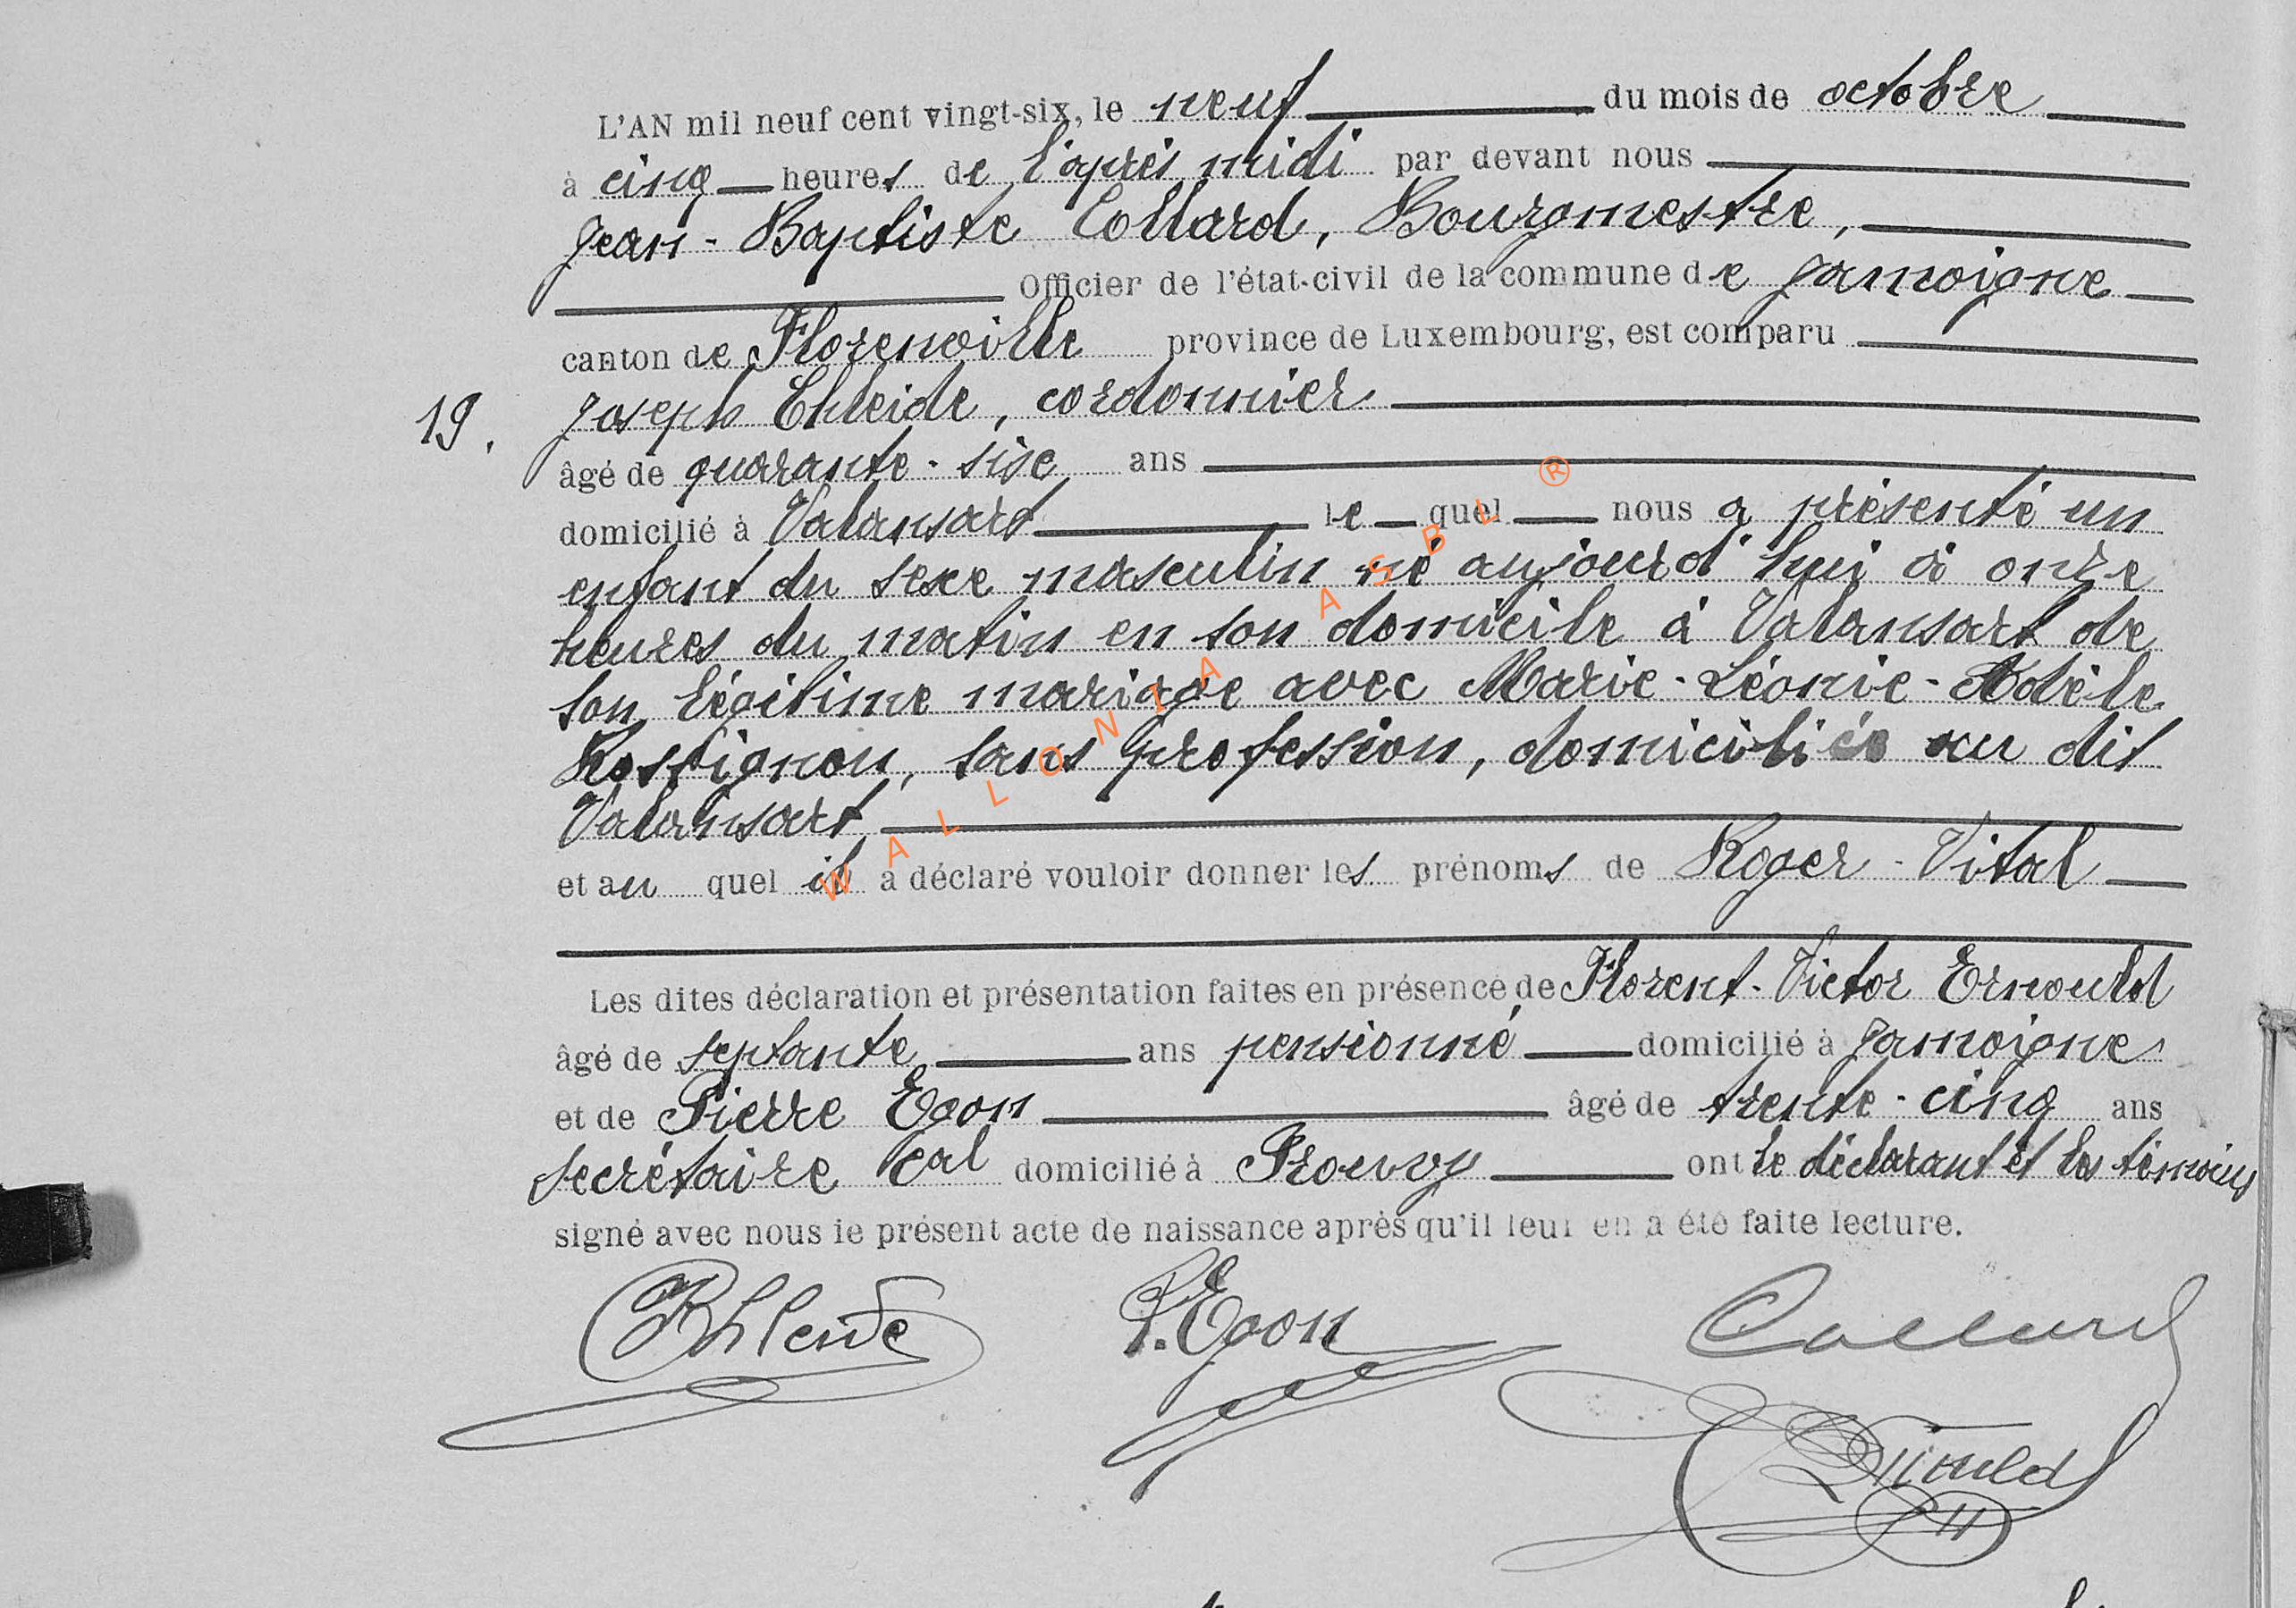 L'AN mil neuf cent vingt-six, le neuf du mois de octobre
à cinq heures de l'après midi par devant nous
Jean-Baptiste Collard, Bourgmestre,
Officier de l'état-civil de la commune de Jamoigne
canton de Florenville province de Luxembourg, est comparu
19. Joseph Ehleide, cordonnier
âgé de quarante-six ans
domicilié à Valansart lequel nous a présenté un
enfant du sexe masculin né aujourd'hui à onze
heures du matin en son domicile à Valansart de
son légitime mariage avec Marie-Léonie-Adèle
Rossignon, sans profession, domiciliée au dit
Valansart
et au quel il a déclaré vouloir donner les prénoms de Roger-Vital
Les dites déclaration et présentation faites en présence de Florent-Victor Ernould
âgé de septante ans pensionné domicilié à Jamoigne
et de Pierre Egon âgé de trente-cinq ans
secrétaire cal domicilié à Prouvy ont le déclarant et les témoins
signé avec nous le présent acte de naissance après qu'il leur en a été faite lecture.
Ehleide P. Egon Collard
Ernould
WALLONIA ASBL ®